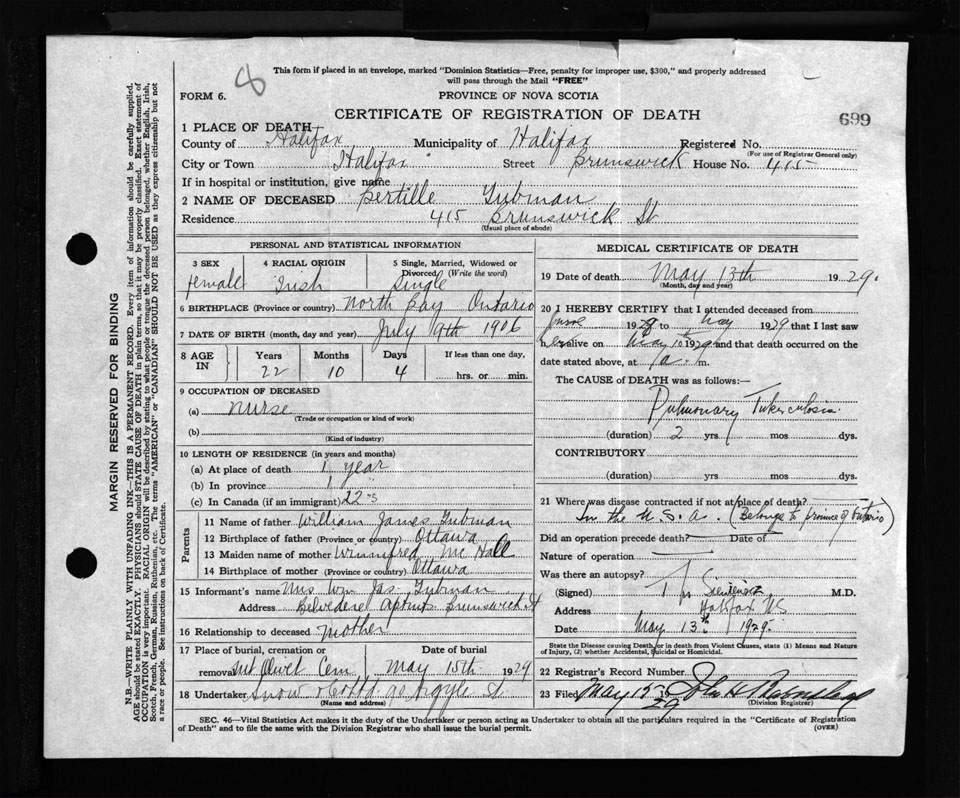 8
This form if placed in an envelope, marked "Dominion Statistics—Free, penalty for improper use, $300," and properly addressed
will pass through the Mail "FREE"
FORM 6.
PROVINCE OF NOVA SCOTIA
CERTIFICATE OF REGISTRATION OF DEATH
699
1 PLACE OF DEATH
County of Halifax Municipality of Halifax Registered No.
(For use of Registrar General only)
City or Town Halifax Street Brunswick House No. 415
If in hospital or institution, give name
2 NAME OF DECEASED Bertille Tubman
Residence 415 Brunswick St
(Usual place of abode)
PERSONAL AND STATISTICAL INFORMATION
3 SEX 4 RACIAL ORIGIN 5 Single, Married, Widowed or
Divorced, (Write the word)
female Irish Single
6 BIRTHPLACE (Province or country) North Bay Ontario
7 DATE OF BIRTH (month, day and year) July 9th 1906
8 AGE IN Years Months Days If less than one day,
22 10 4 hrs. or min.
9 OCCUPATION OF DECEASED
(a) nurse
(Trade or occupation or kind of work)
(b)
(Kind of industry)
10 LENGTH OF RESIDENCE (in years and months)
(a) At place of death 1 year
(b) In province 1 "
(c) In Canada (if an immigrant) 22 "s
Parents
11 Name of father William James Tubman
12 Birthplace of father (Province or country) Ottawa
13 Maiden name of mother Winnifred McHall
14 Birthplace of mother (Province or country) Ottawa
15 Informant's name Mrs Wm Jas Tubman
Address Belvedere Aptmts Brunswick St
16 Relationship to deceased mother
17 Place of burial, cremation or Date of burial
removal Mt Olivet Cem May 15th 1929
18 Undertaker Snow & Co Ltd 90 Argyle St
(Name and address)
MEDICAL CERTIFICATE OF DEATH
19 Date of death May 13th 1929.
(Month, day and year)
20 I HEREBY CERTIFY that I attended deceased from
June 1928 to May 1929 that I last saw
her alive on May 10 1929 and that death occurred on the
date stated above, at a. m.
The CAUSE OF DEATH was as follows:—
Pulmonary Tuberculosis
(duration) 2 yrs. mos dys.
CONTRIBUTORY
(duration) yrs. mos dys.
21 Where was disease contracted if not at place of death?
In the U.S.A. (Belongs to province of Ontario)
Did an operation precede death? Date of
Nature of operation
Was there an autopsy?
(Signed) M.D.
Address Halifax NS
Date May 13th 1929.
State the Disease causing Death, or in death from Violent Causes, state (1) Means and Nature
of Injury, (2) whether Accidental, Suicidal or Homicidal.
22 Registrar's Record Number
23 Filed May 15 19 29 John H
(Division Registrar)
SEC. 46—Vital Statistics Act makes it the duty of the Undertaker or person acting as Undertaker to obtain all the particulars required in the "Certificate of Registration
of Death" and to file the same with the Division Registrar who shall issue the burial permit.
(OVER)
MARGIN RESERVED FOR BINDING
N.B.—WRITE PLAINLY WITH UNFADING INK—THIS IS A PERMANENT RECORD. Every item of information should be carefully supplied.
AGE should be stated EXACTLY. PHYSICIANS should STATE CAUSE OF DEATH in plain terms, so that it may be properly classified. Exact statement of
OCCUPATION is very important. RACIAL ORIGIN will be described by stating to what people or tongue the deceased person belonged, whether English, Irish,
Scotch, French, German, Russian, Ruthenian, etc. The terms "AMERICAN" or "CANADIAN" SHOULD NOT BE USED as they express citizenship but not
a race or people. See instructions on back of Certificate.